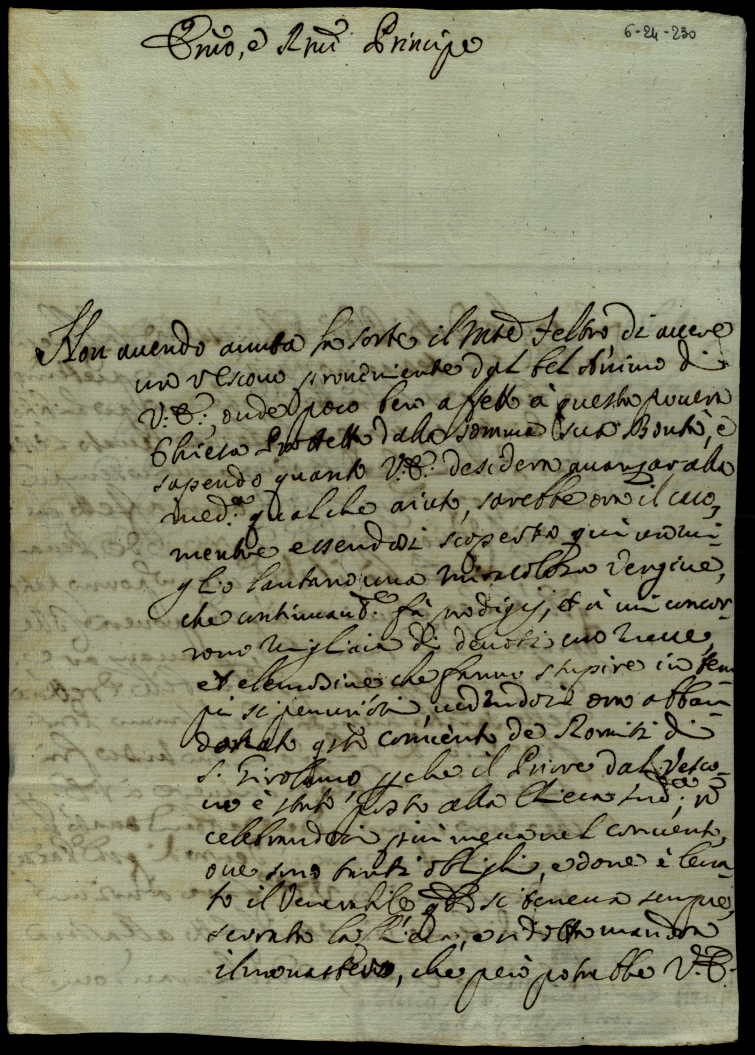 6-24-230
Emo, e Rmo Principe
Non avendo avuta la sorte il Mte Feltro di avere
un Vescovo proveniente dal bel Animo di
V. E., onde poco ben affetto à questa povera
Chiesa Protetta dalla somma sua Bontà, e
sapendo quanto V. E. desidera avanzar alla
med.a qualche aiuto, sarebbe ora il caso,
mentre essendosi scoperta qui un mi-
glio lontano una miracolosa Vergine,
che continuam.e fà prodigij, et à cui concor-
rono migliaia di devoti con
et elemosine che fanno stupire in tem-
pi si penuriosi, vedendosi ora abban-
donato q.sto convento de Romiti di
S. Girolamo, p che il Priore dal Vesco-
vo è stato posto alla Chiesa sud.a; n
celebrandosi più messa nel convento,
ove sono tanti oblighi, e dove è leva-
to il Venerabile, q.do si teneva sempre,
serrata la Chiesa, e ridotta mandra
il monastero, che però potrebbe V. E.